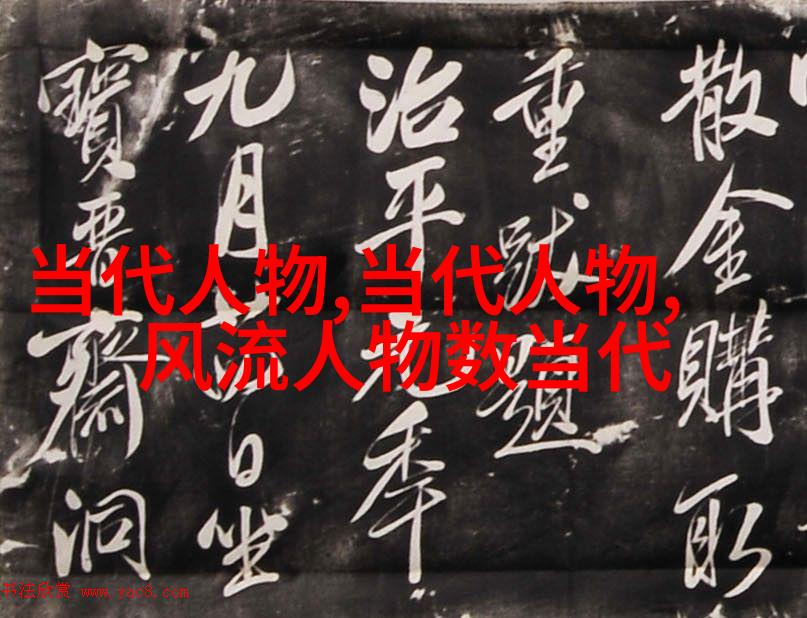 散金購取
重跋題
治平元秊
九月日坐
寶晋齋洞
当代人物,当代人物,
风流人物数当代
书法欣赏 www.yac8.com